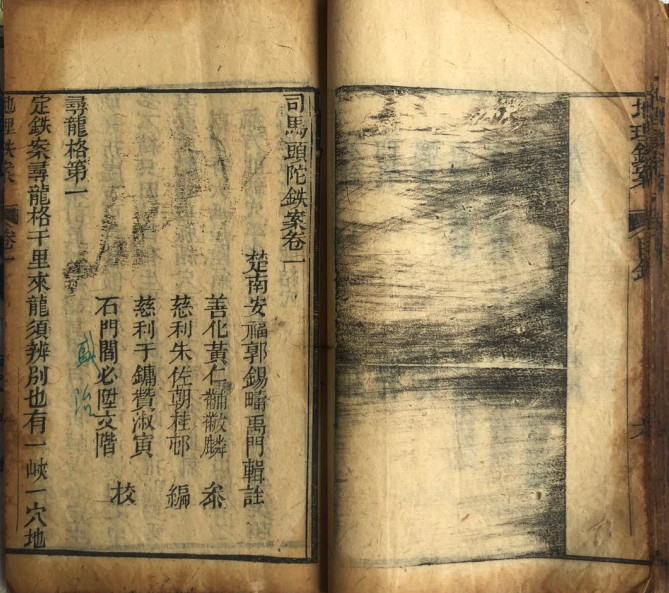 地理鉄案
司馬頭陀鉄案卷一
楚南安福郭錫疇禹門輯註
善化黃仁黼黻麟 叅
慈利朱佐朝桂邨 編
慈利于鏞贊淑寅
石門閻必陞文階 校
尋龍格第一
定鉄案尋龍格千里來龍須辨別也有一峽一穴地
地理鉄案 卷一